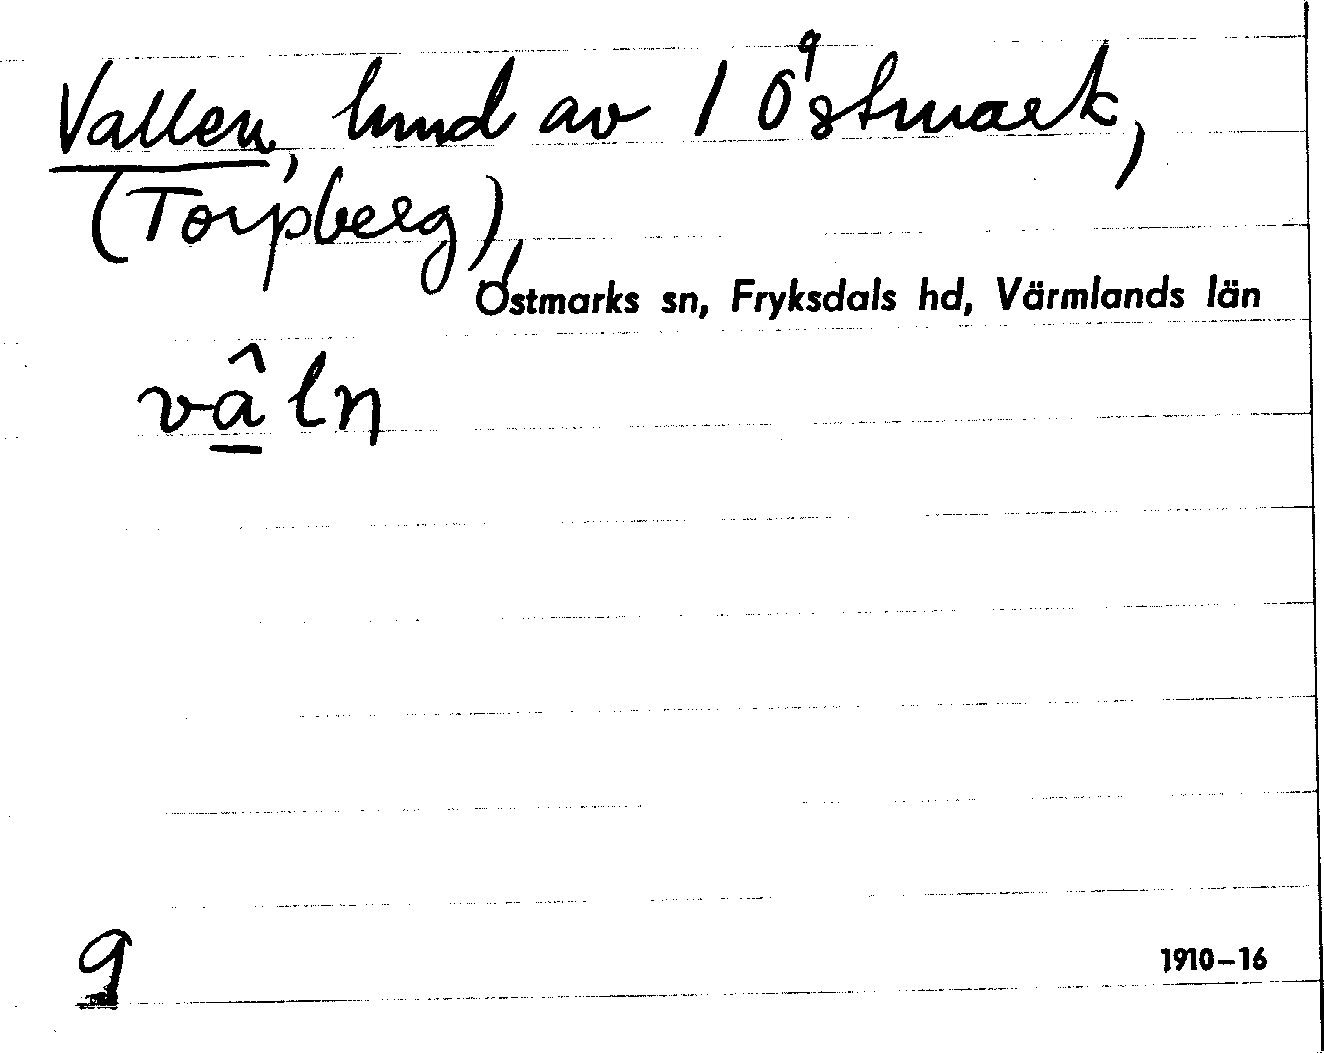 Vallen, lund av 1⁹ Östmark,
(Torpberg),
Östmarks sn, Fryksdals hd, Värmlands län
vâln
9
1910–16